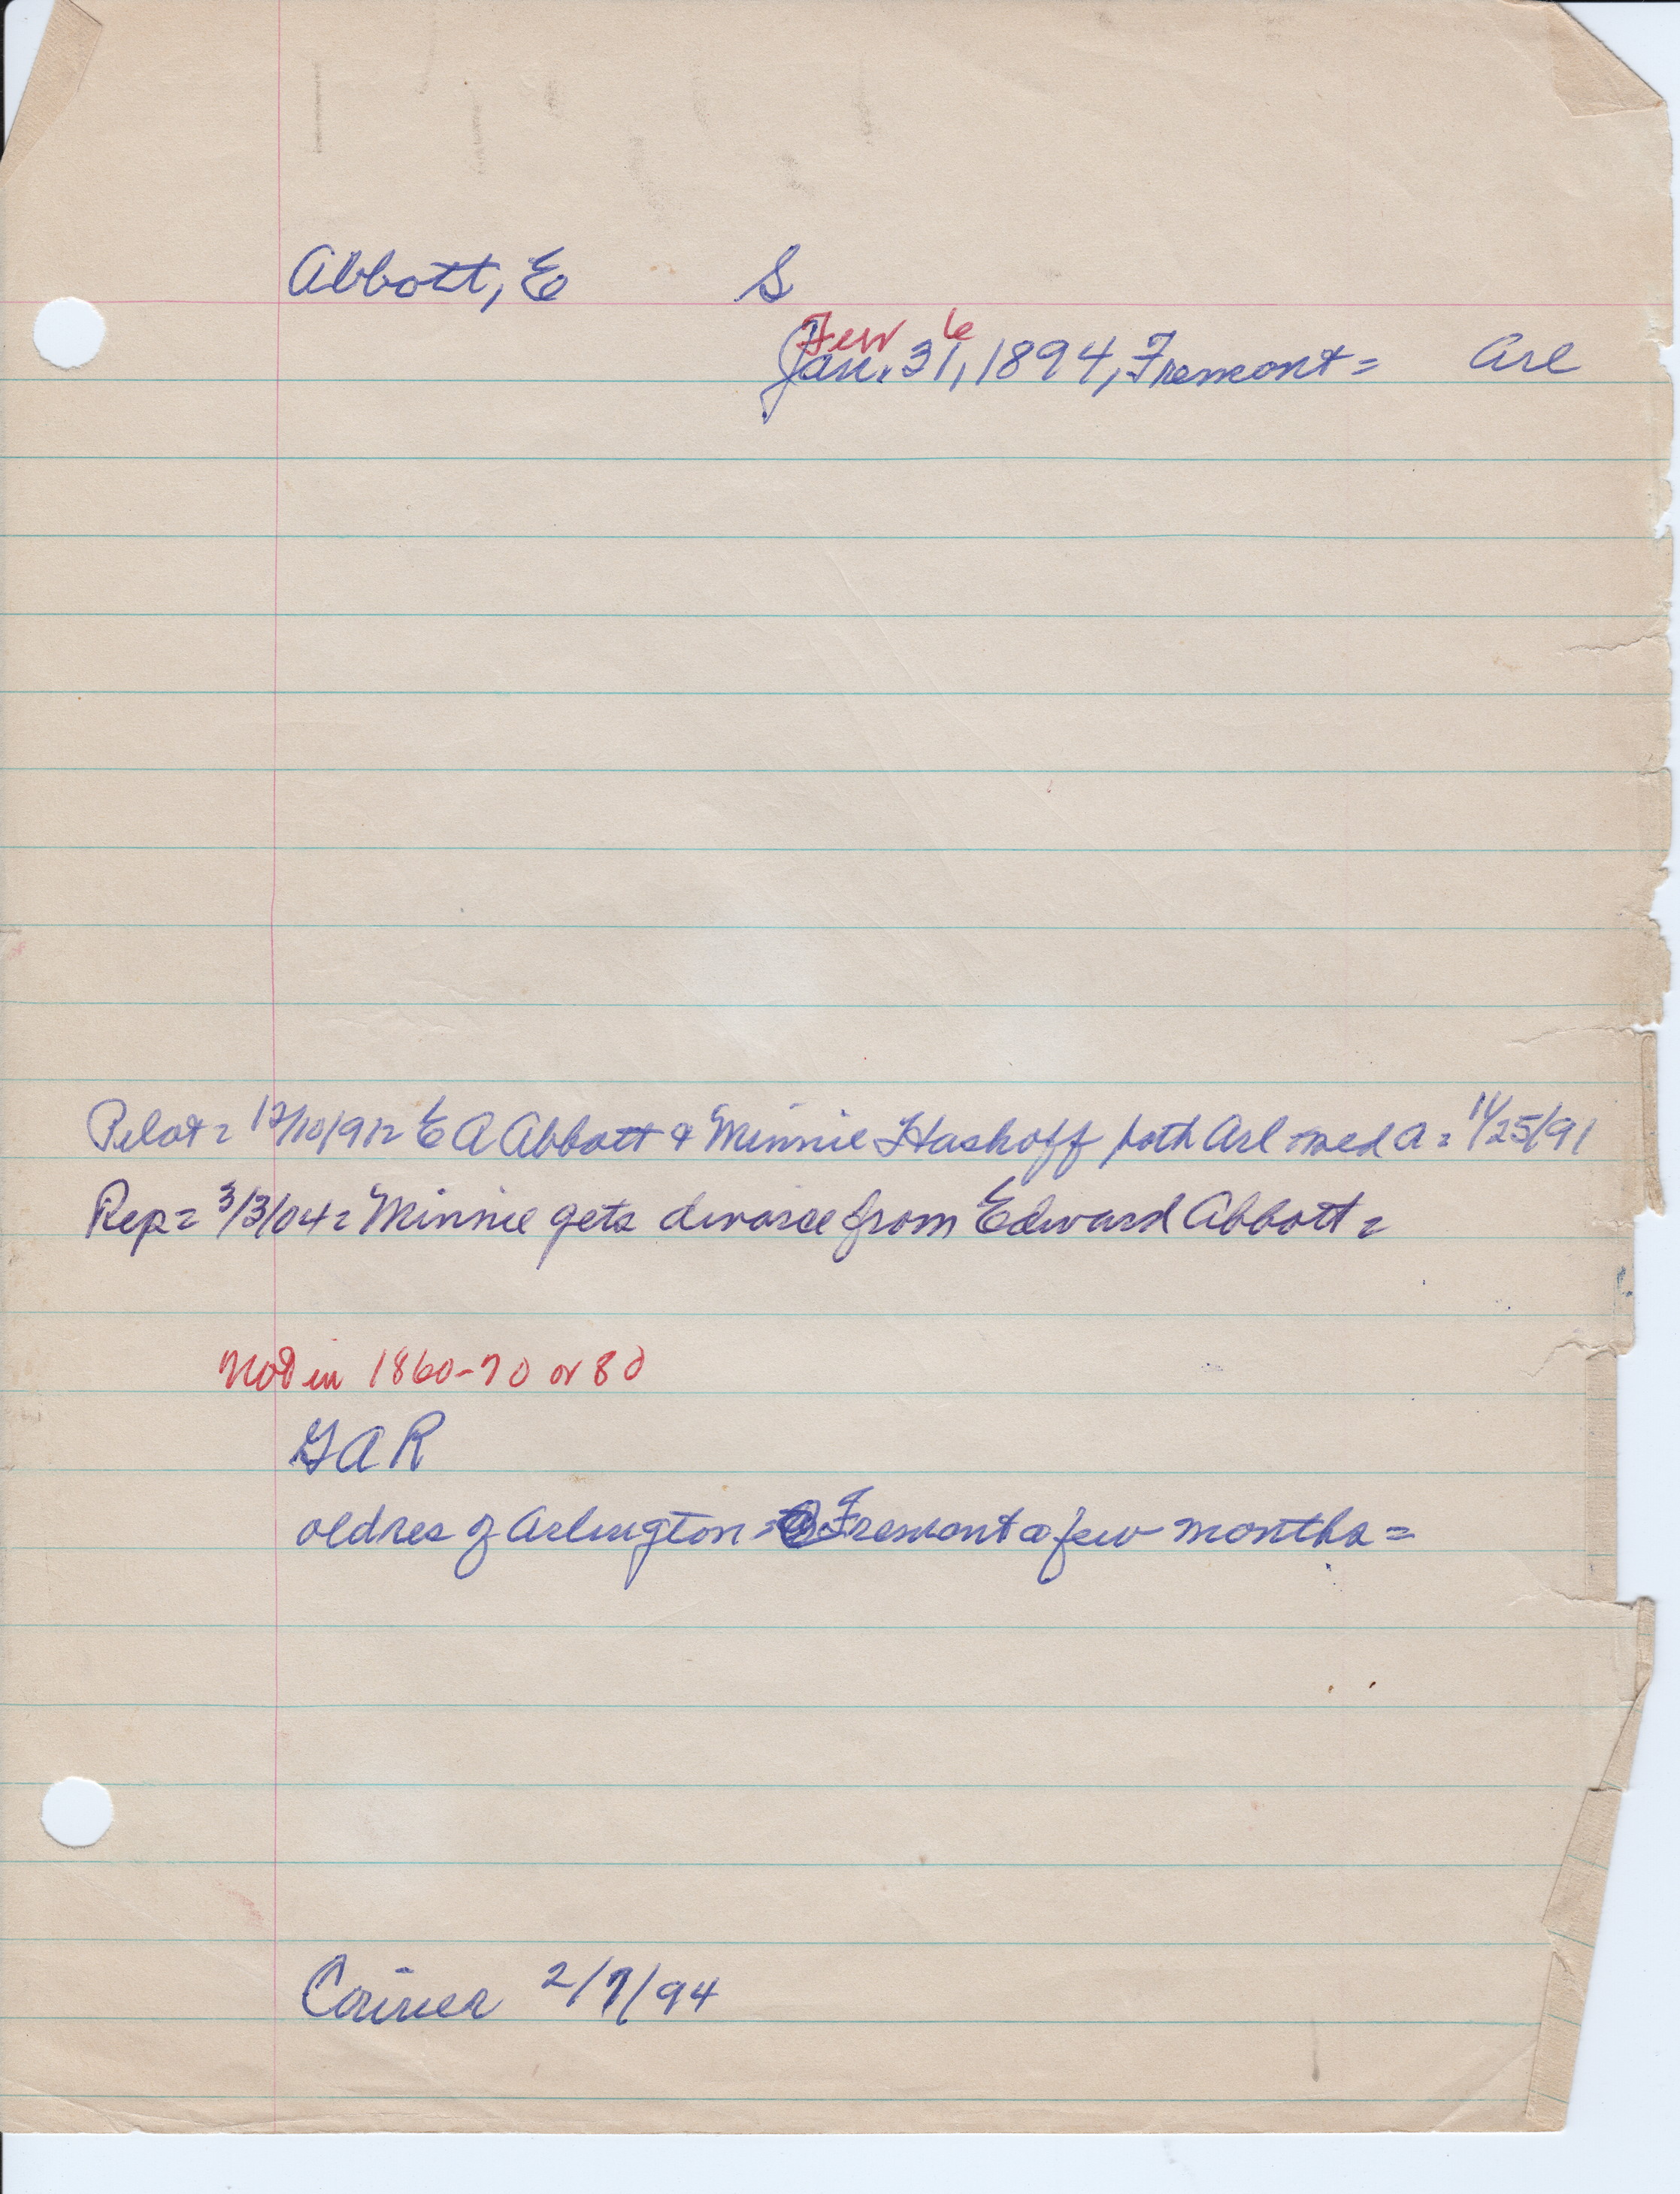 Abbott, E S
Few 6
Jan. 31, 1894, Fremont = Arl
Pilot = 12/10/91 = E A Abbott & Minnie Hashoff both Arl med a = 11/25/91
Rep = 3/3/04 = Minnie gets divorce from Edward Abbott =
Not in 1860-70 or 80
G A R
old res of Arlington = Fremont a few months =
Courier 2/7/94